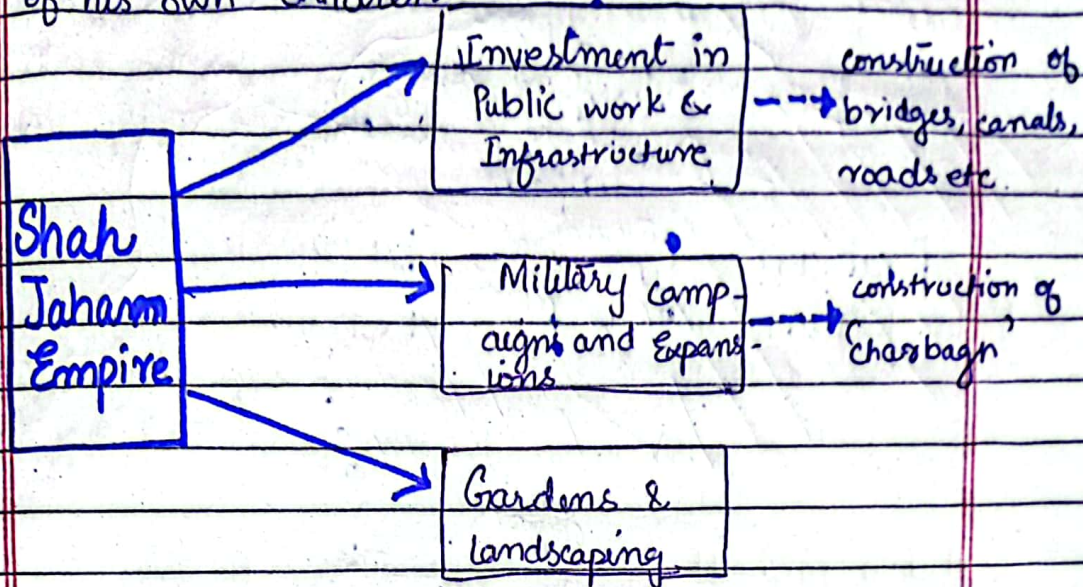 of his own
Investment in
Public work &
Infrastructure
construction of
bridges, canals,
roads etc.
Shah
Jahann
Empire
Military camp-
aigns and Expans-
ions
construction of
'charbagh'
Gardens &
landscaping